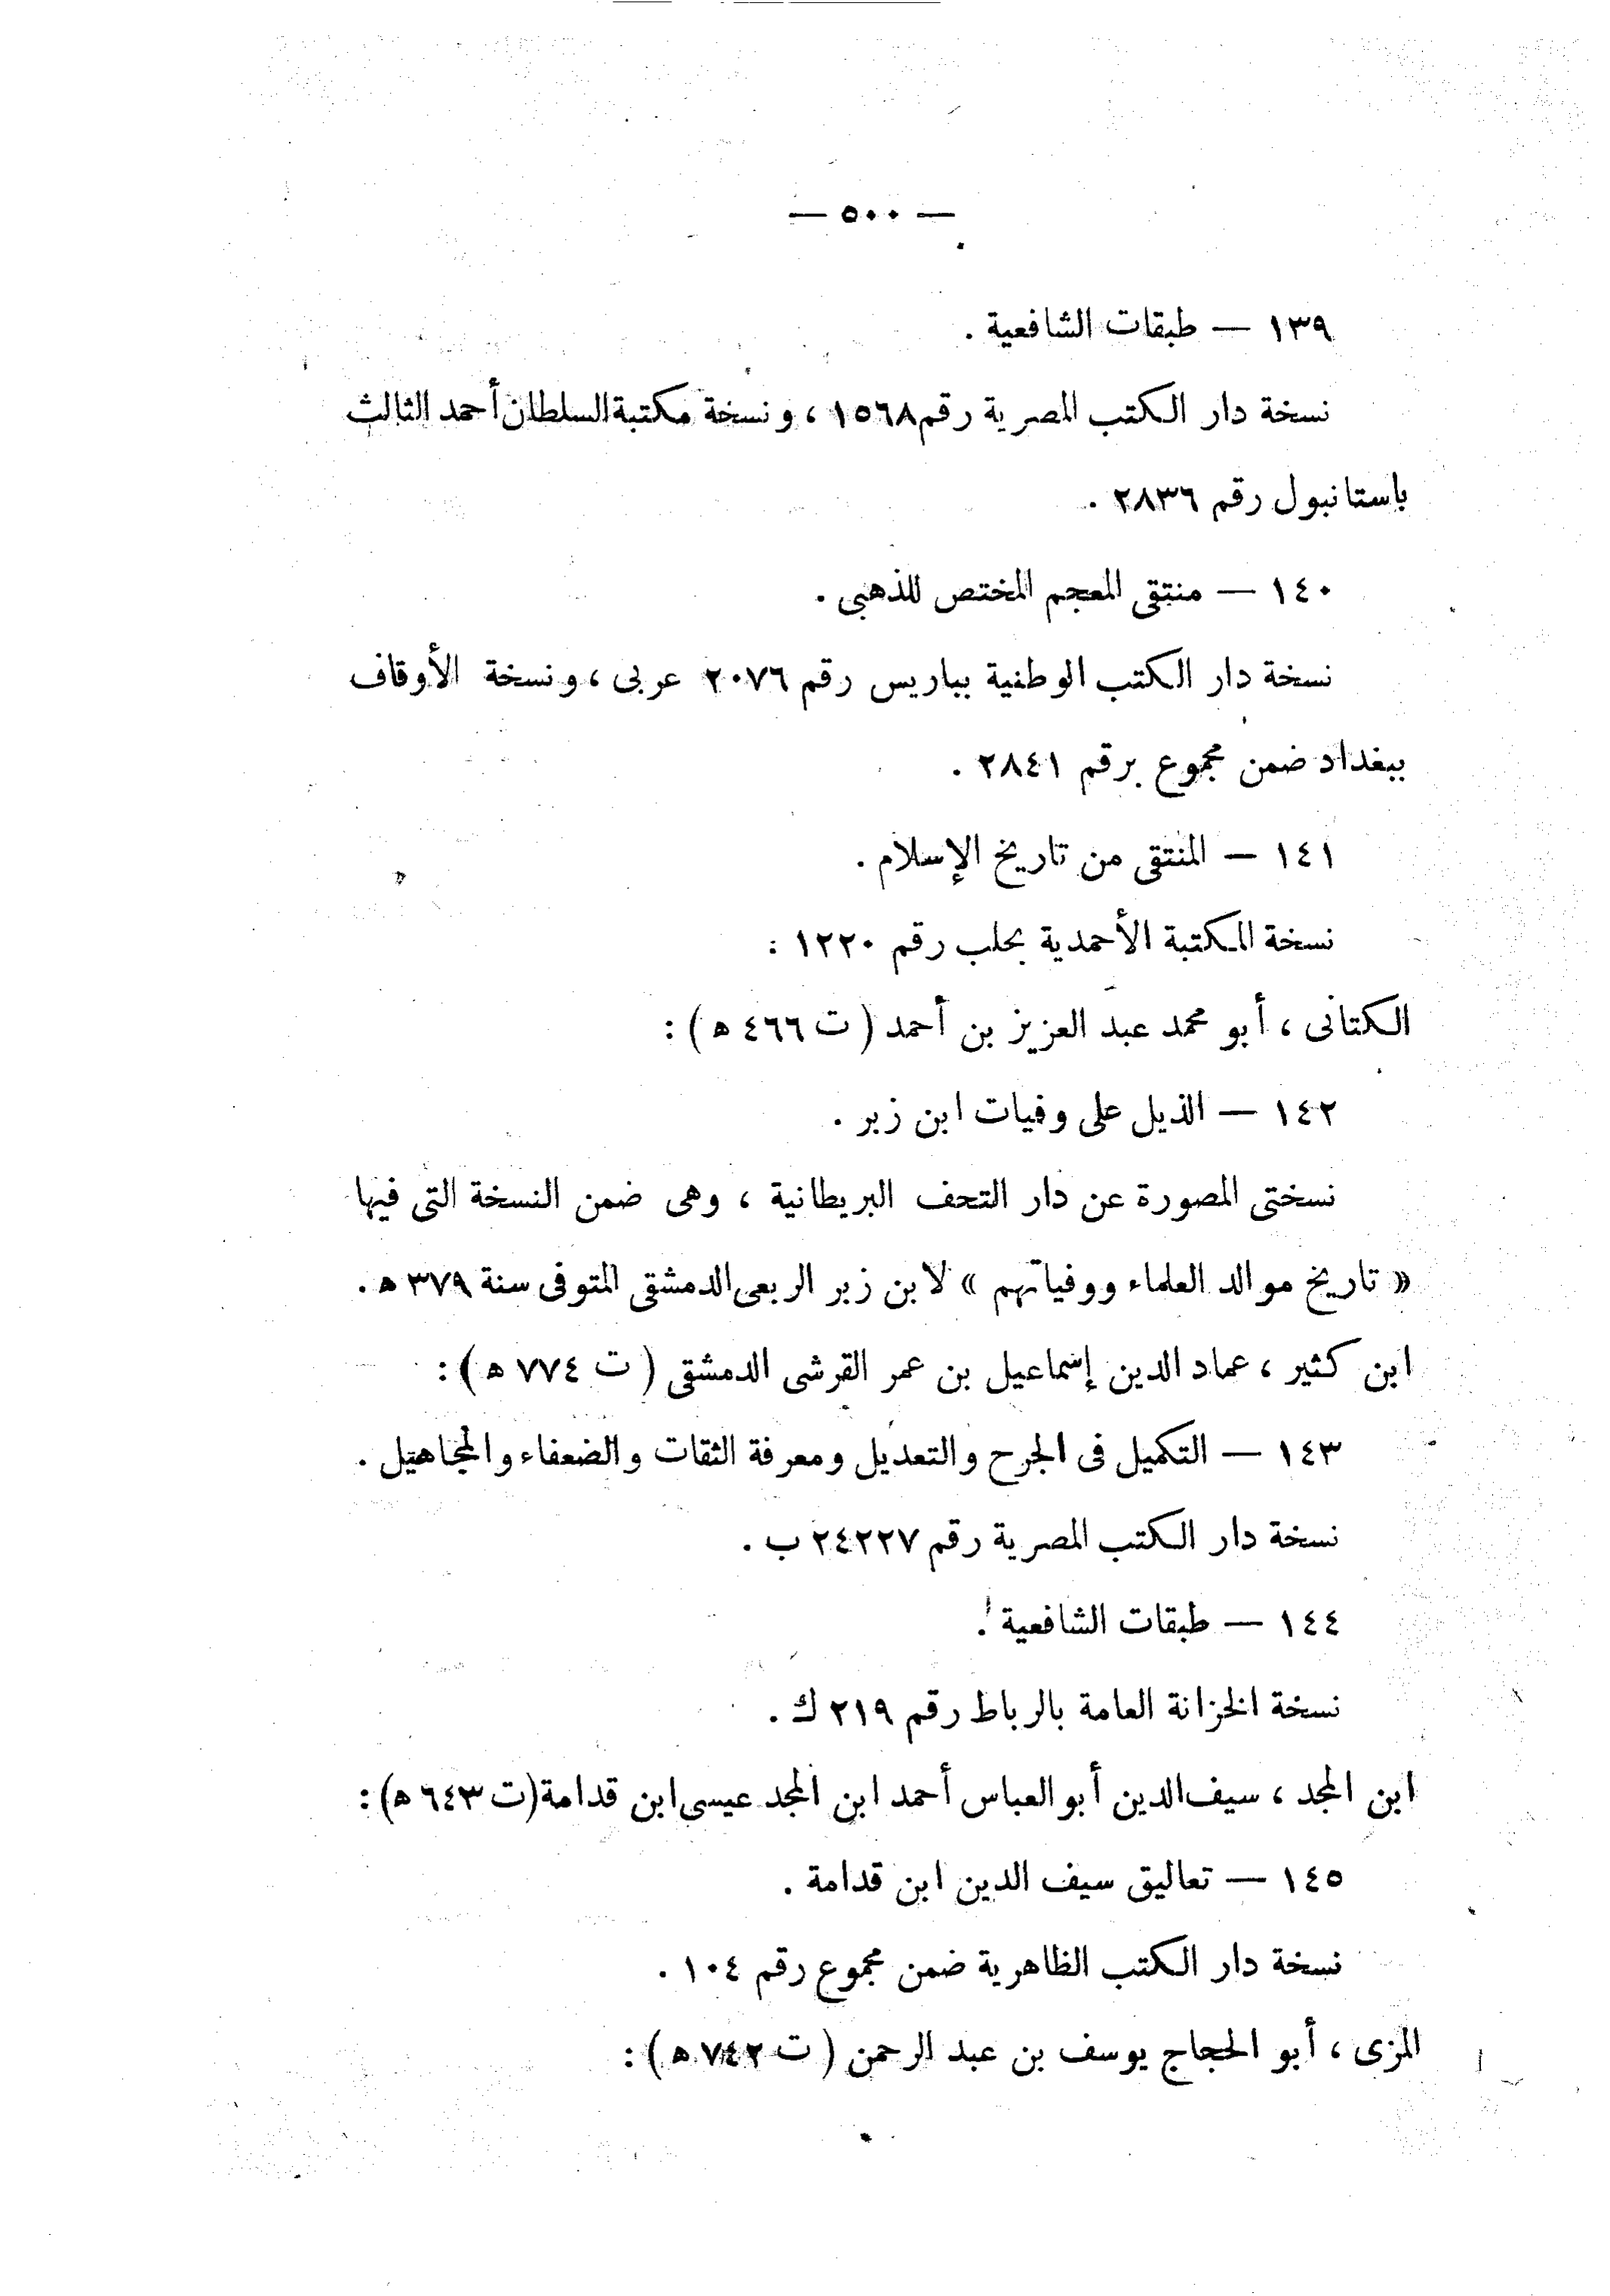 — ٥٠٠ —
١٣٩ — طبقات الشافعية .
نسخة دار الكتب المصرية رقم ١٥٦٨ ، ونسخة مكتبة السلطان أحمد الثالث
باستانبول رقم ٢٨٣٦ .
١٤٠ — منتقى المعجم المختص للذهبى .
نسخة دار الكتب الوطنية بباريس رقم ٢٠٧٦ عربى ، ونسخة الأوقاف
ببغداد ضمن مجموع برقم ٢٨٤١ .
١٤١ — المنتقى من تاريخ الإسلام .
نسخة المكتبة الأحمدية بحلب رقم ١٢٢٠ :
الكتانى ، أبو محمد عبد العزيز بن أحمد ( ت ٤٦٦ ه ) :
١٤٢ — الذيل على وفيات ابن زبر .
نسختى المصورة عن دار التحف البريطانية ، وهى ضمن النسخة التى فيها
« تاريخ موالد العلماء ووفياتهم » لابن زبر الربعى الدمشقى المتوفى سنة ٣٧٩ ه .
ابن كثير ، عماد الدين إسماعيل بن عمر القرشى الدمشقى ( ت ٧٧٤ ه ) :
١٤٣ — التكميل فى الجرح والتعديل ومعرفة الثقات والضعفاء والمجاهيل .
نسخة دار الكتب المصرية رقم ٢٤٢٢٧ ب .
١٤٤ — طبقات الشافعية .
نسخة الخزانة العامة بالرباط رقم ٢١٩ ك .
ابن المجد ، سيف الدين أبو العباس أحمد ابن المجد عيسى ابن قدامة (ت ٦٤٣ ه) :
١٤٥ — تعاليق سيف الدين ابن قدامة .
نسخة دار الكتب الظاهرية ضمن مجموع رقم ١٠٤ .
المزى ، أبو الحجاج يوسف بن عبد الرحمن ( ت ٧٤٢ ه ) :